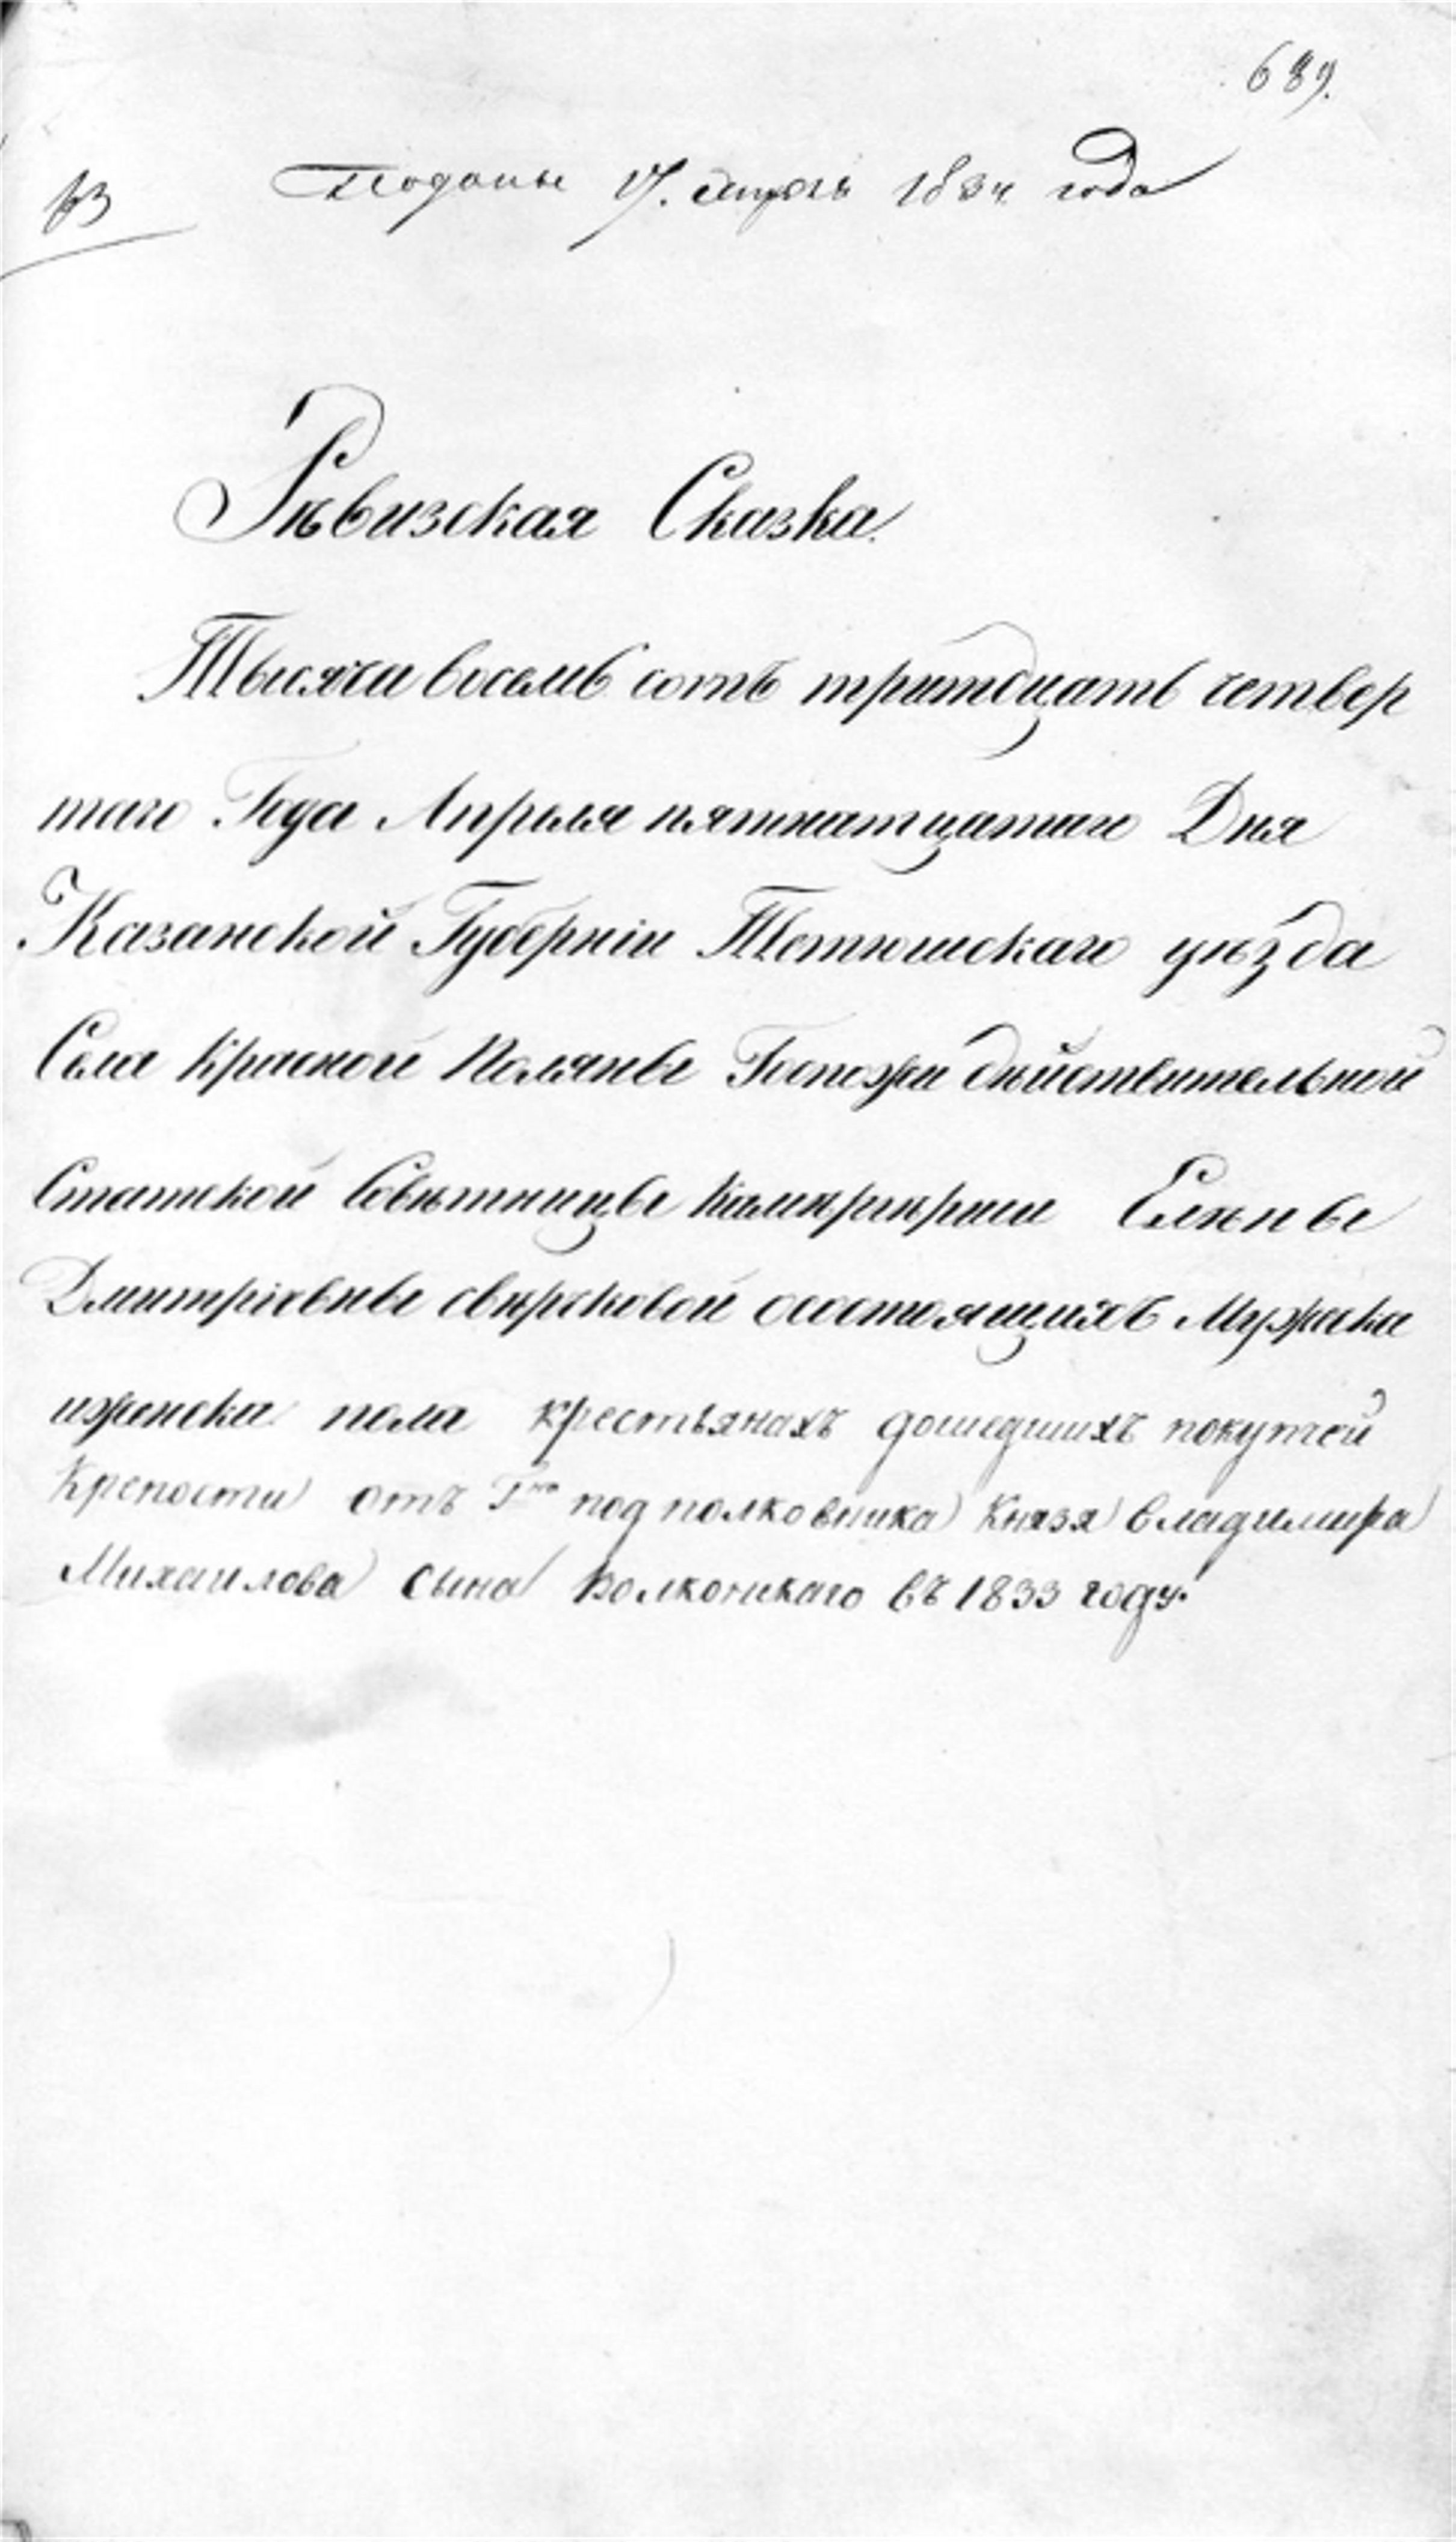 689.
63
Поданы 17. апреля 1834 года
Рѣвизская Сказка.
Тысяча восемь сотъ тритдцать четвер
таго Года Апреля пятнатцатаго Дня
Казанской Губерніи Тетюшскаго уѣзда
Села Красной Поляны Госпожи дѣйствительной
Статской Совѣтницы Камѣргѣрши Елѣны
Дмитріевны свѣрсковой осостоящихъ Мужска
иженска пола крестьянахъ дошедшихъ покупчей
Крепости отъ Гна подполковника Князя Владимира
Михаилова сына Волконскаго въ 1833 году.